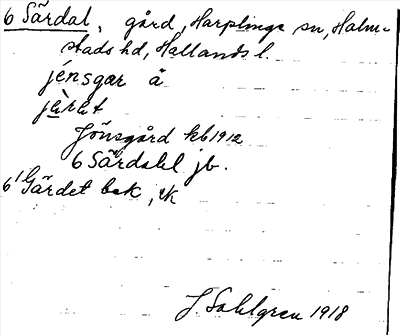 6 Särdal, gård, Harplinge sn, Halm-
stads hd, Hallands l.
jénsgar å
jèrat
Jönsgård kb 1912
6 Särdahl jb.
6¹⁄₆ Gärdet bok, ek
J. Sahlgren 1918